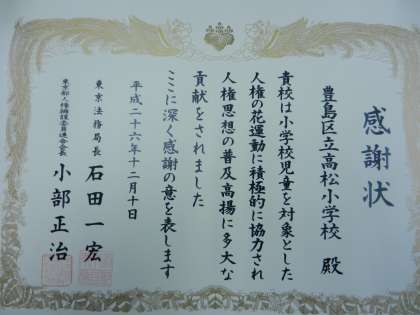 感謝状
豊島区立高松小学校 殿
貴校は小学校児童を対象とした
人権の花運動に積極的に協力され
人権思想の普及高揚に多大な
貢献をされました
ここに深く感謝の意を表します
平成二十六年十二月十日
東京法務局長 石田一宏
東京都人権擁護委員連合会長 小部正治